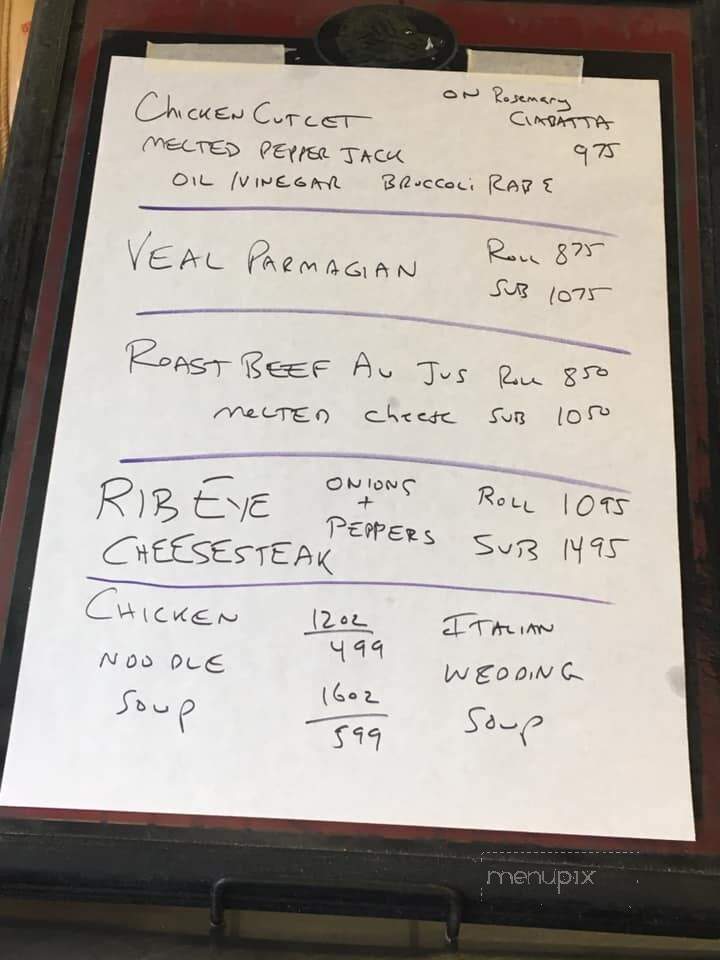 CHICKEN CUTLET ON Rosemary CIABATTA
MELTED PEPPER JACK 975
OIL / VINEGAR BROCCOLI RABE
VEAL PARMAGIAN ROLL 875
SUB 1075
ROAST BEEF AU JUS ROLL 850
MELTED cheese SUB 1050
RIB EYE ONIONS + PEPPERS ROLL 1095
CHEESESTEAK SUB 1495
CHICKEN 12oz ITALIAN
NOODLE 499 WEDDING
SOUP 16oz SOUP
599
menupix